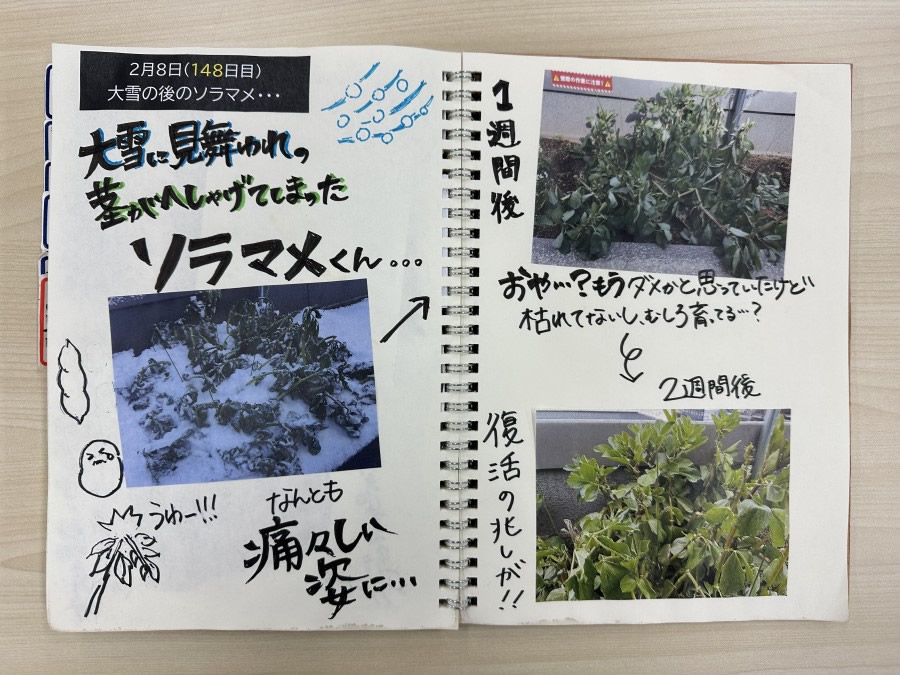 2月8日(148日目)
大雪の後のソラマメ･･･
大雪に見舞われ
茎がへしゃげてしまった
ソラマメくん…
うわー!!!
なんとも
痛々しい
姿に…
1週間後
おや…?もうダメかと思っていたけど
枯れてないし、むしろ育ってる…?
2週間後
復活の兆しが!!